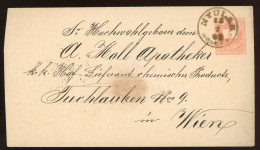 Sr Hochwohlgeboren dem
A. Moll Apotheker
k. k. Hof-Lieferant chemischer Products,
Tuchlauben Nro 9.
in Wien
NYULAS